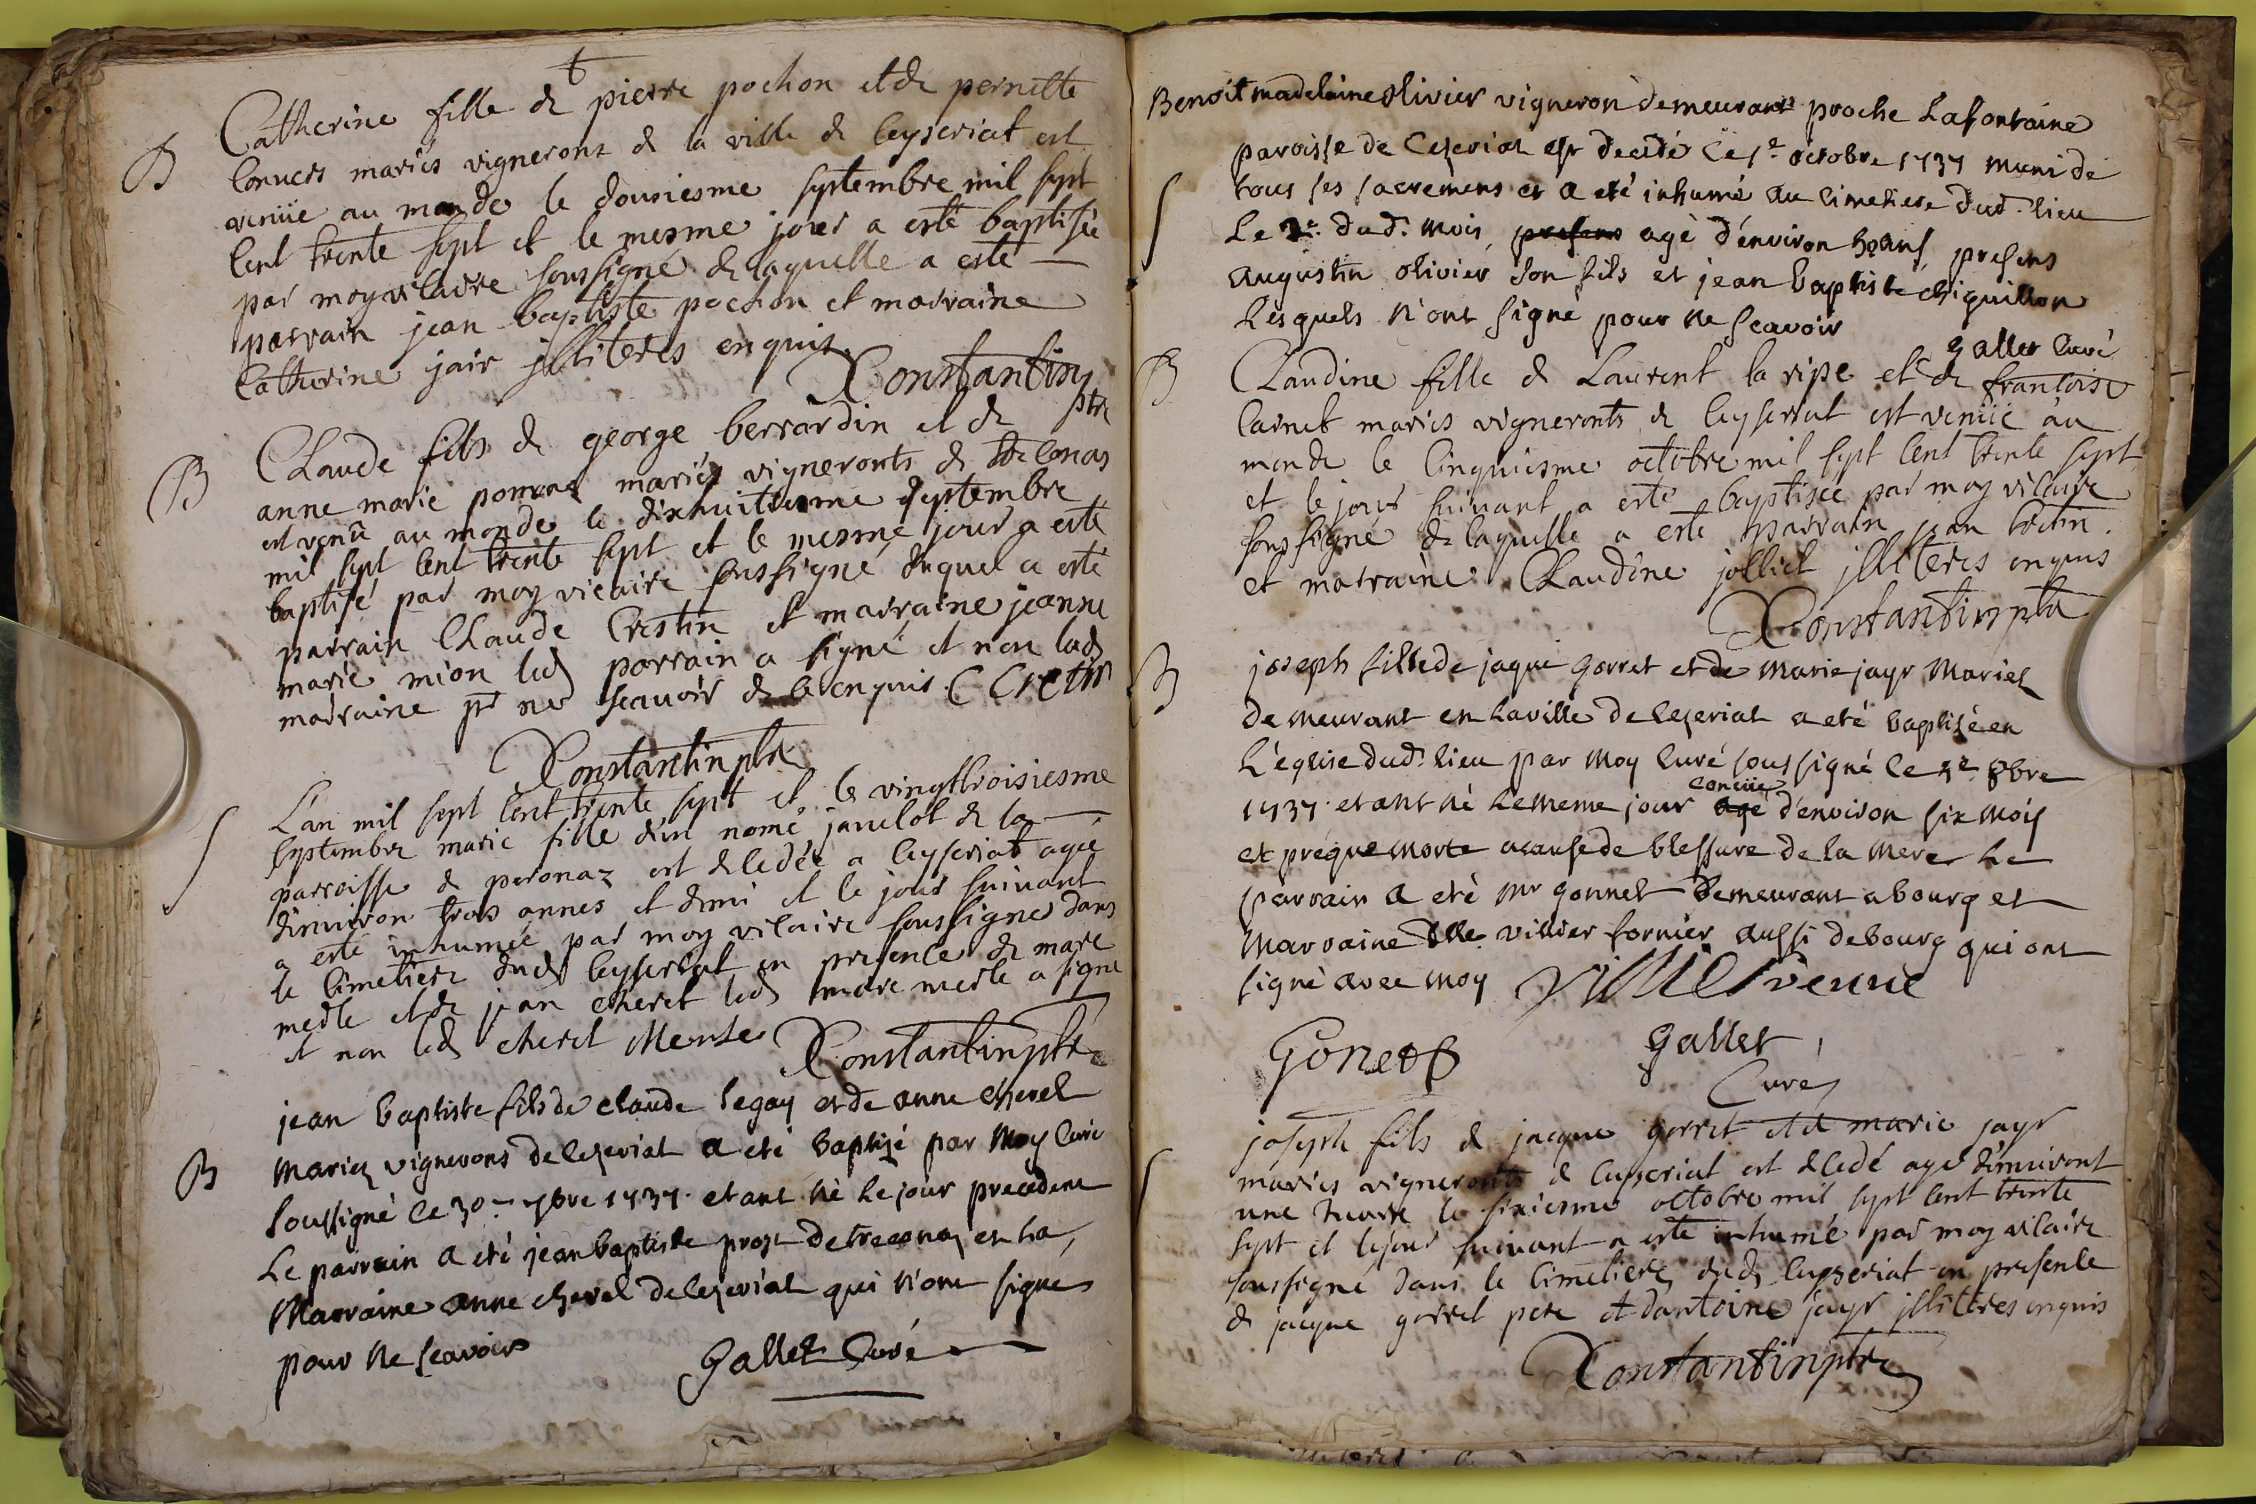 Catherine fille de pierre pochon et de pernette
B
Convers mariés vignerons de la ville de Ceyseriat est
venüe au monde le dousiesme septembre mil sept
Cent trente sept et le mesme jour a esté baptisée
par moy vicaire soussigné de laquelle a esté
parrain jean baptiste pochon et marraine
Catherine jair jlliteres enquis.
Constantin
ptre
B
Claude fils de george berrardin et de
anne marie mariés vigneronts de
est venû au monde le dixhuitiesme septembre
mil sept Cent trente sept et le mesme jour a esté
baptisé par moy vicaire soussigné duquel a esté
parrain Claude Cretin et marraine jeanne
marie mion led parrain a signé et non lad
marraine pr ne scavoir de ce enquis C Cretin
Constantin ptre
S
L'an mil sept Cent trente sept et le vingttroisiesme
septembre marie fille d'un nomé javelot de la
parroisse de peronaz est decedée a Ceyseriat agée
d'environ trois annes et demi et le jour suivant
a esté inhumée par moy vicaire soussigné dans
le Cimetiere dud Ceyseriat en presence de marc
merle et de jean cheret led marc merle a signé
et non led cheret Merle Constantin ptre
B
jean baptiste fils de claude legay et de anne cheret
mariez vignerons de Cezeriat a eté baptizé par Moy Curé
soussigné le 30e 7bre 1737. etant né le jour precedent
Le parrain a eté jean baptiste prost de treconaz et La
Marraine anne cheret de Cezeriat qui n'ont signé
pour ne scavoir Gallet Curé
Benoit madelaine olivier vigneron demeurant proche Lafontaine
paroisse de Cezeriat est decedé le 1e octobre 1737 muni de
S
tous ses sacremens et a eté inhumé au cimetiere dud. lieu
Le 2e. dud. mois, presens agé d'environ ans presens
augustin olivier son fils et jean baptiste chiquillon
Lesquels n'ont signé pour ne scavoir
Gallet Curé
B
Claudine fille de Laurent la ripe et de francoise
Carnet mariés vigneronts de Ceyseriat est venüe au
monde le Cinquiesme octobre mil sept Cent trente sept
et le jour suivant a esté baptisée par moy vicaire
soussigné de laquelle a esté parrain jean Cretin
et marraine Claudine jolliet jlliteres enquis
Constantin ptre
B
joseph fils de jaque Gorret et de Marie jayr Mariez
demeurant en Laville de Cezeriat a eté baptisé en
L'église dud. lieu par Moy Curé soussigné le 5e. 8bre
concüe
1737. etant né le meme jour agé d'environ six mois
et preque morte a cause de blessure de la mere Le
parrain a eté Mr gonnet demeurant a bourg et
Marraine Dlle. villier fornier aussi de bourg qui ont
signé avec moy
Gonet Gallet
Curé
S
joseph fils de jacque gorret et de marie jayr
mariés vigneronts de Ceyseriat est decedé agé d'environt
une heure le sixiesme octobre mil sept Cent trente
sept et le jour suivant a esté inhumé par moy vicaire
soussigné dans le Cimetiere dud Ceyseriat en presence
de jacque gorret pere et d'antoine jayr jlliteres enquis
Constantin ptre